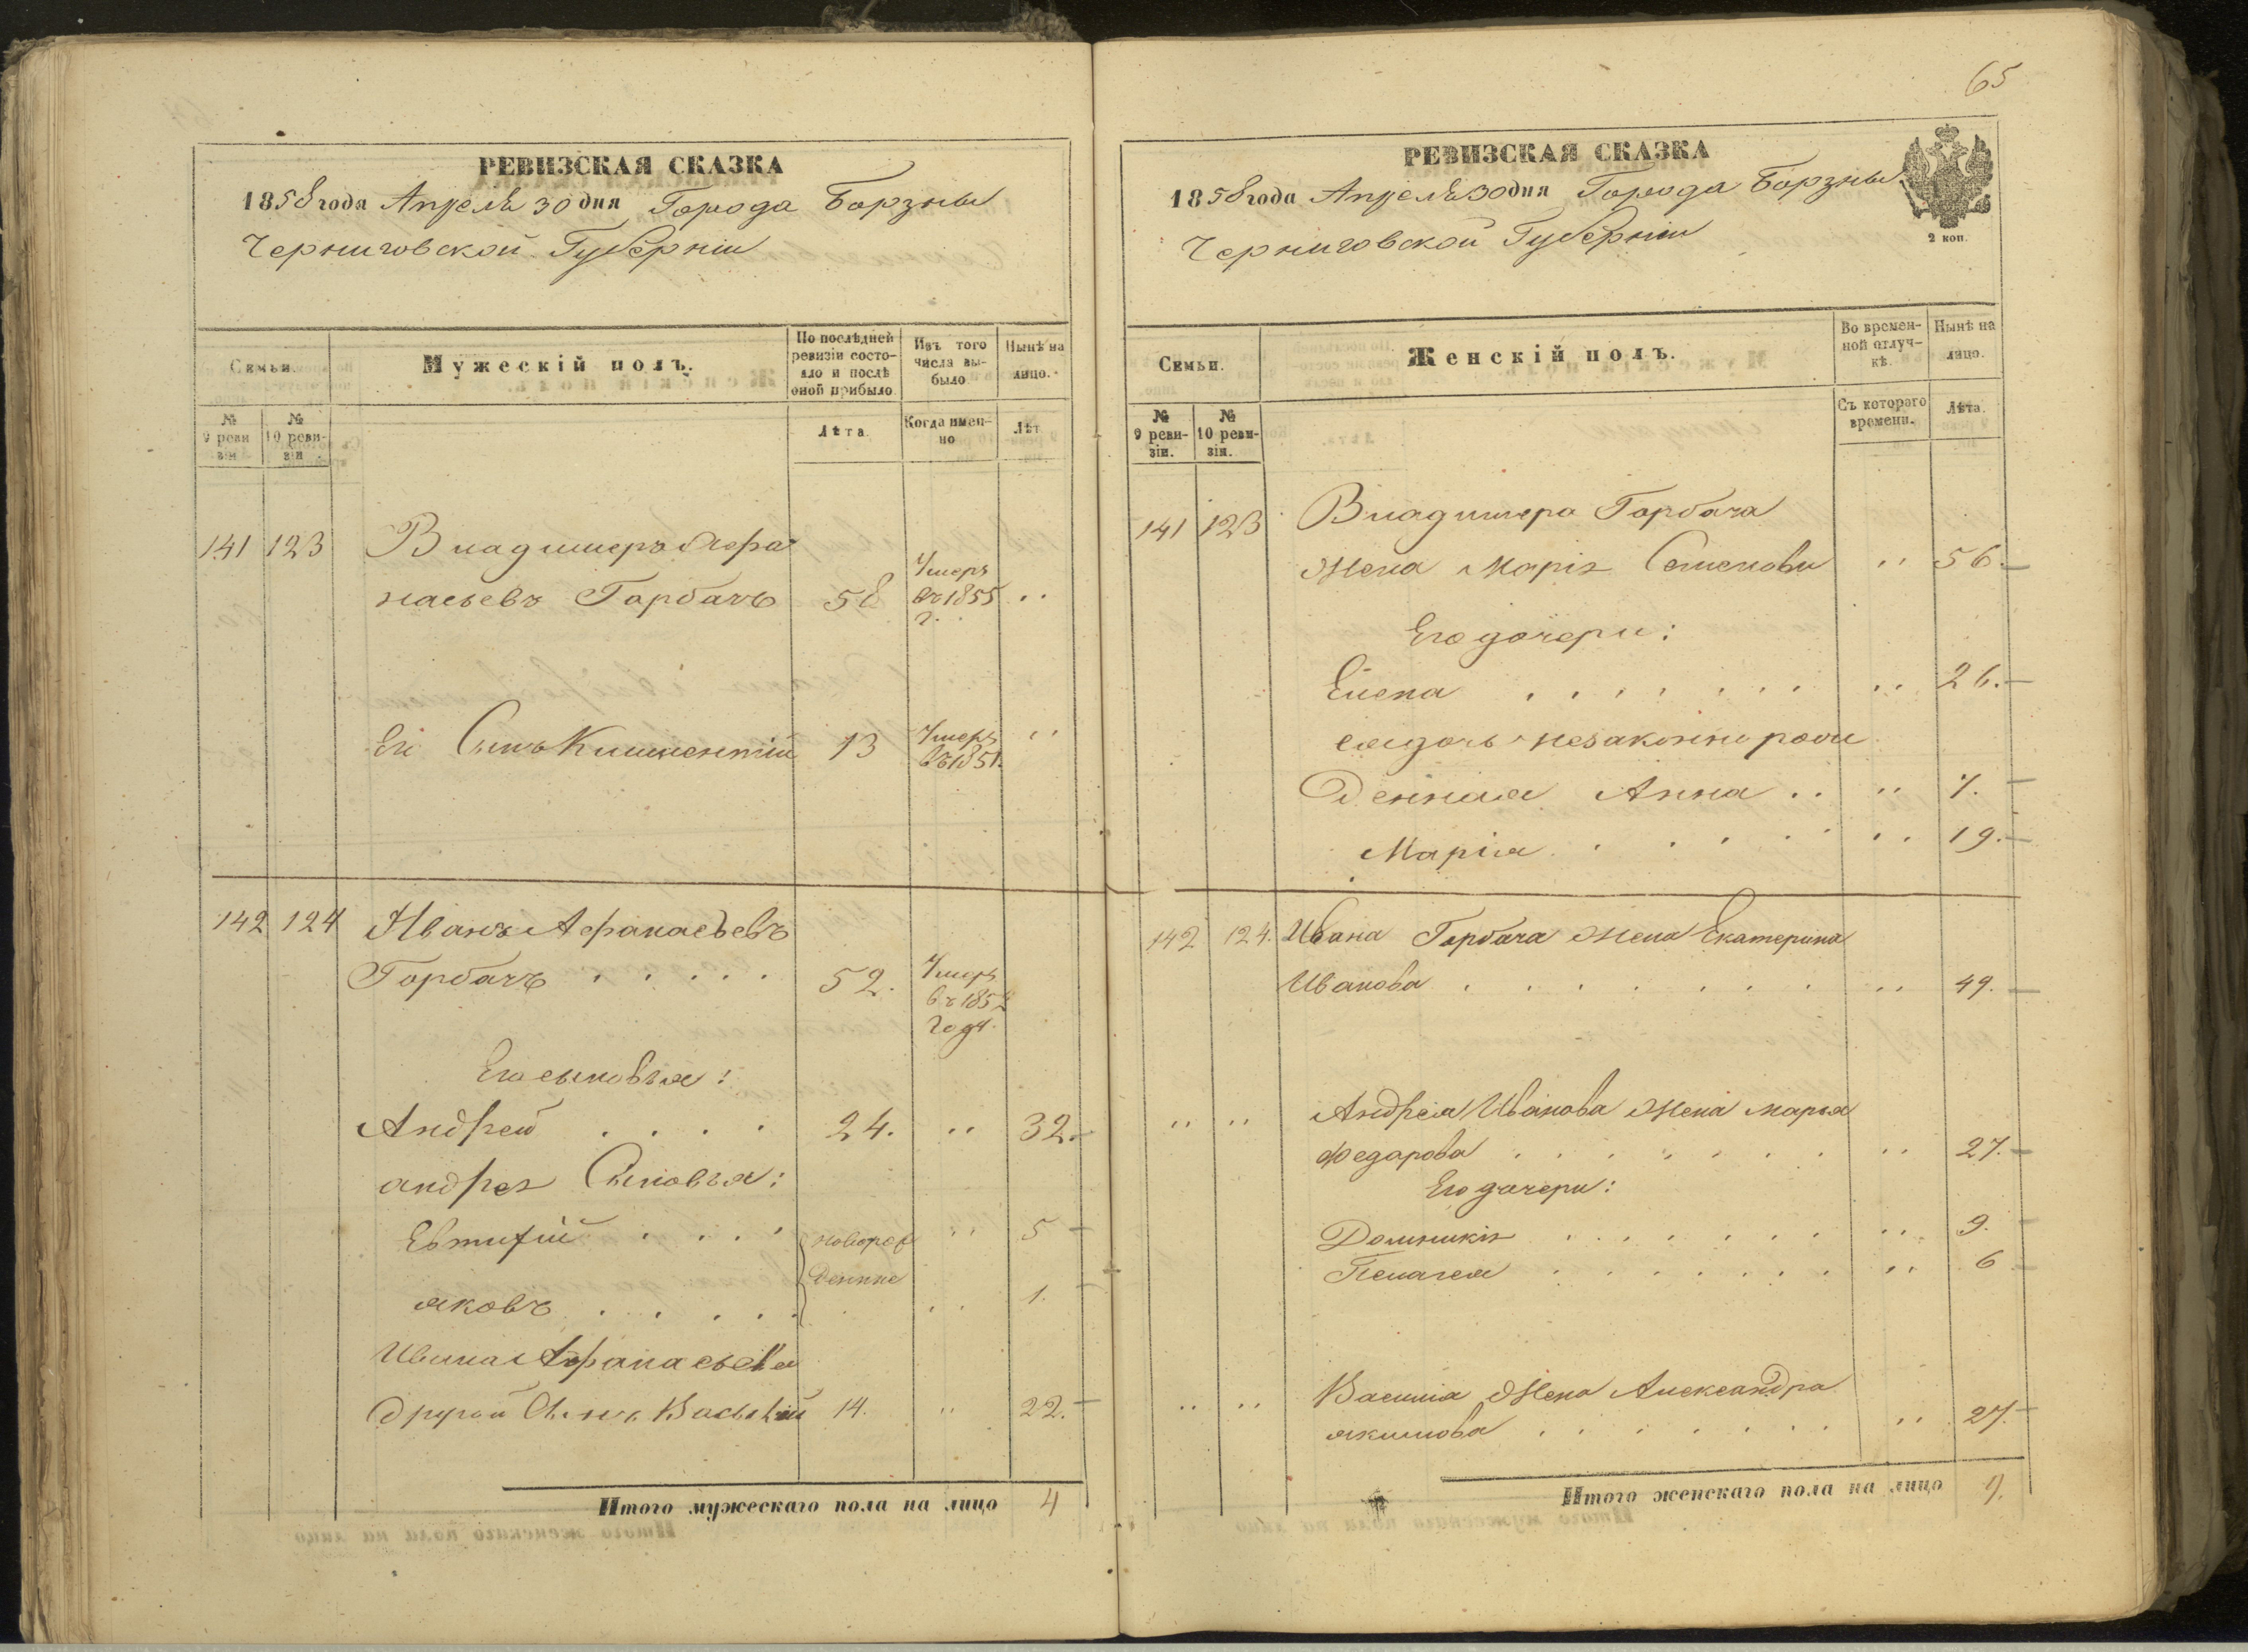 РЕВИЗСКАЯ СКАЗКА
1858 года Апреля 30 дня Города Борзны
Черниговской Губерніи
Семьи.
Мужескій полъ.
По послѣдней ревизіи состояло и послѣ оной прибыло
Изъ того числа выбыло
Нынѣ на лицо.
№ 9 ревизіи
№ 10 ревизіи.
Лѣта.
Когда именно
Лѣт
141 123 Владимеръ Афа
насьевъ Горбачъ 58 Умеръ въ 1855 г. "
Ег Сынъ Климентій 13 Умеръ въ 1851. "
142 124 Иванъ Афанасьевъ
Горбачъ . . . . . 52. Умеръ въ 1852 года.
Его сыновья:
Андрей . . . . 24. " 32.
андрея Сыновья:
Евтифій . . . . новорож " 5
денные
яковъ . . . . . " 1.
Ивана Афанасьева
другой Сынъ Василій 14. " 22.
Итого мужескаго пола на лицо 4
65
РЕВИЗСКАЯ СКАЗКА
1858 года Апреля 30 дня Города Борзны
Черниговской Губерніи
2 коп.
Семьи.
Женскій полъ.
Во временной отлучкѣ.
Нынѣ на лицо.
№ 9 ревизіи.
№ 10 ревизіи.
Съ котораго времени.
Лѣта.
141 123 Владимера Горбача
Жена Марія Семенова " 56.
Его дочери:
Елена . . . . . . . " 26.
ея дочь незаконно рож
Денная Анна . . " 7.
Марія . . . . . " 19.
142 124. Ивана Горбача Жена Екатерина
Иванова . . . . . . . . " 49.
" " Андрея Иванова Жена марья
Федарова . . . . . . . " 27.
Его дачери:
Домникія . . . . . . . " 9.
Пелагея . . . . . . . " 6
" " Василія Жена Александра
якимова . . . . . . . " 27.
Итого женскаго пола на лицо 9.